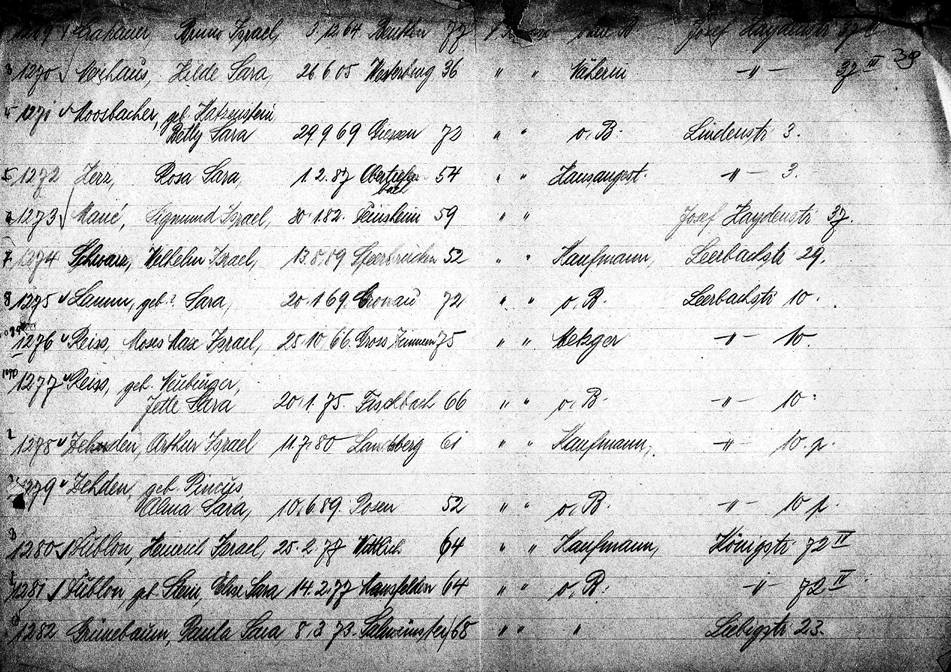 Bruno Israel, 3.12.64 Beuthen 77 Josef Haydenstr
1270 Neihaus, Hilde Sara, 26 6 05 Westerburg 36 " " Näherin -"- 37 III 38
1271 Moosbacher, geb. Katzenstein
Betty Sara 29 9 69 Giessen 72 " " o. B. Lindenstr 3.
1272 Herz, Rosa Sara, 1. 2. 87 54 " " Hausangest. -"- 3.
1273 Marié, Sigmund Israel, 30 1 82. 59 " " Josef Haydenstr 37.
1274 Schwarz, Wilhelm Israel, 13.8.89 Saarbrücken 52 " " Kaufmann, Leerbachstr 29.
1275 Lamm, geb. ? Sara, 20 1 69. Gronau 72 " " o. B. Leerbachstr 10.
1276 Reiss, Moses Max Israel, 25 10 66 Gross Zimmern 75 " " Metzger -"- 10.
1277 Reiss, geb. Neuburger,
Jette Sara 20. 1. 75. Fischbach 66 " " o. B. -"- 10.
1278 Zehnden, Arthur Israel 11. 7. 80 Landsberg 61 " " Kaufmann, -"- 10 p.
1279 Zehden, geb. Pincus
Alma Sara, 10. 6. 89. Posen 52 " " o. B. -"- 10 p.
1280 Süblon, Heinrich Israel, 25. 2. 77 Wittlich 64 " " Kaufmann, Königstr 72 IV
1281 Süblon, geb. Stein, Elise Sara 14. 2. 77 Mansfelden 64 " " o. B. -"- 72 IV
1282 Grünebaum, Paula Sara 8. 3 73. 68 " " " Liebigstr 23.